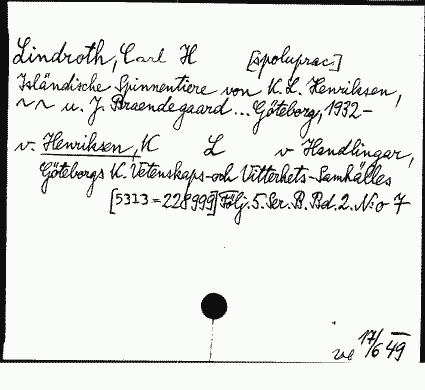 Lindroth, Carl H [spoluprac.]
Isländische Spinnentiere von K. L. Henriksen,
~ ~ u. J. Braendegaard ... Göteborg, 1932-
v. Henriksen, K L v Handlingar,
Göteborgs K. Vetenskaps-och Vitterhets-Samhälles
[5313=228999] Följ. 5. Ser. B. Bd. 2. N:o 7
17/6 49
ve